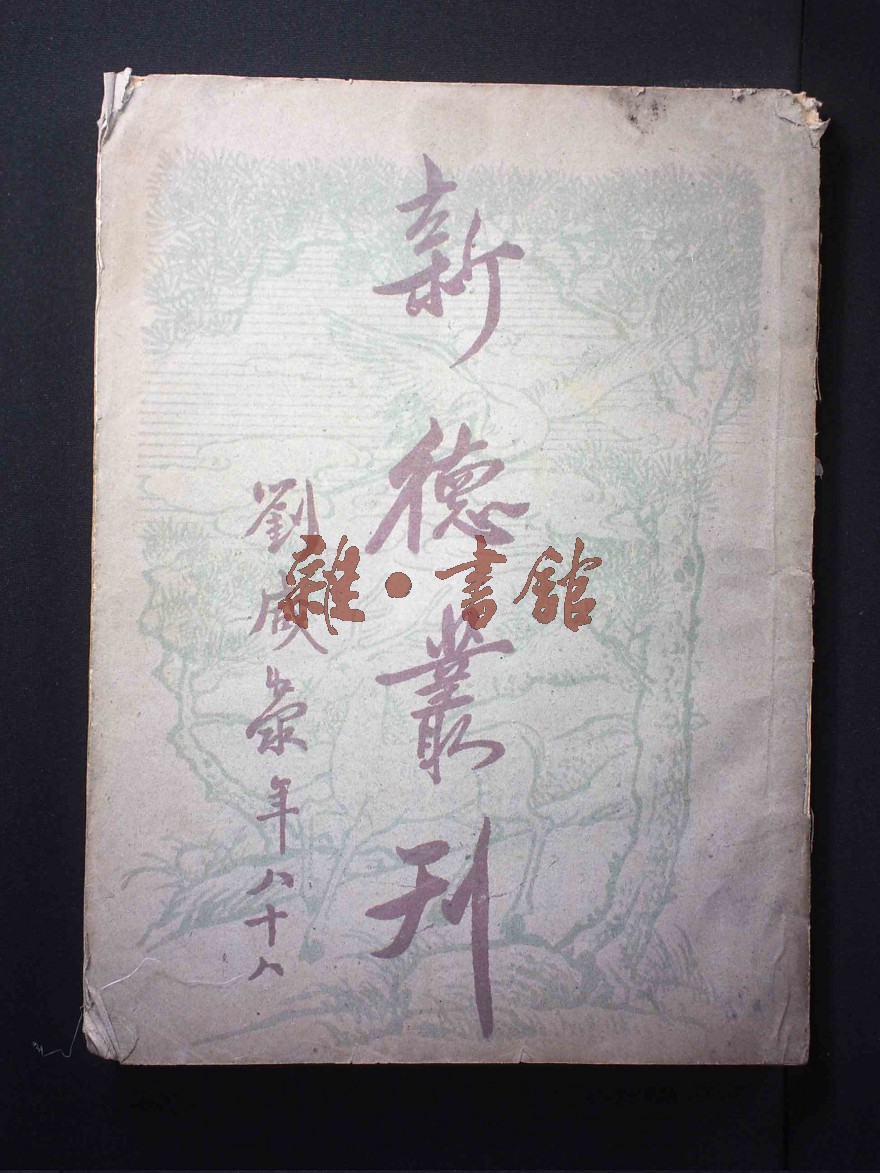 新德叢刊
劉咸滎年八十八
雜·書館